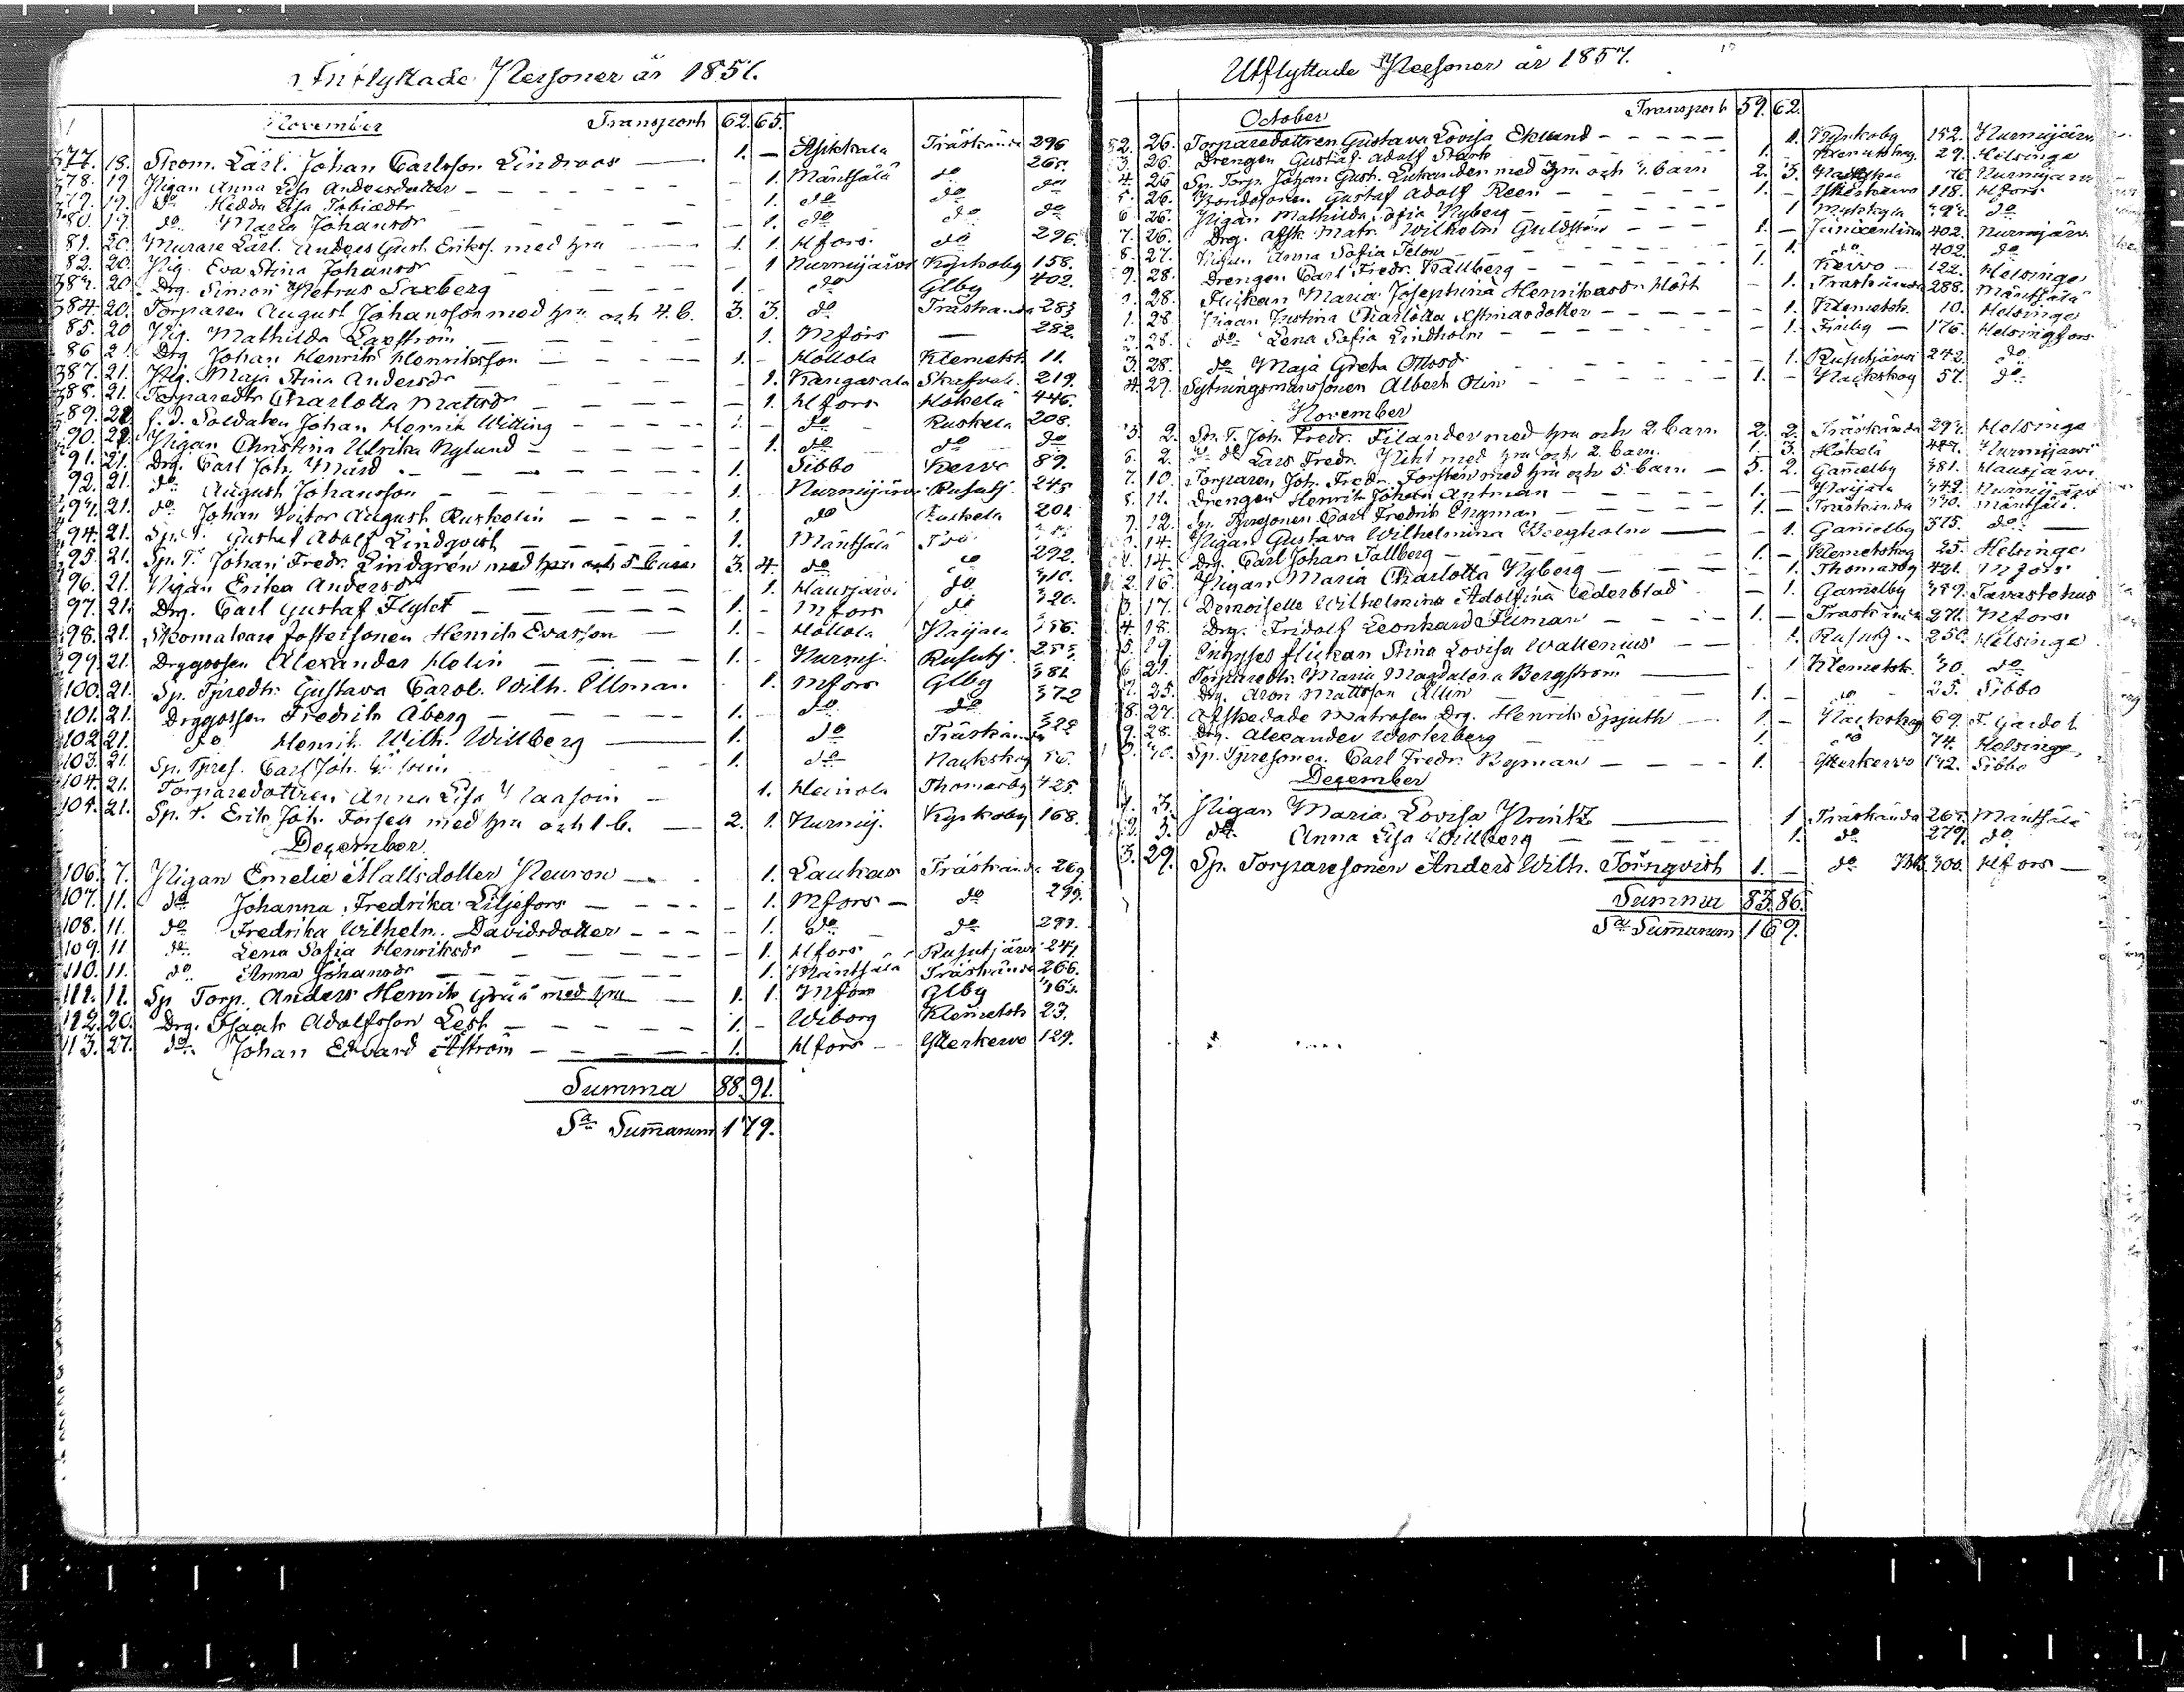 Inflyttade Personer år 1857.
November Transport 62. 65.
77. 18. Skom. Lärl. Johan Carlsson Lindroos — 1. — Asikkala Träskända 296
78. 19 Pigan Anna Lisa Andersdotter — 1. Mäntsälä do 265.
79. 19. do Hedda Lisa Tobiædtr — 1. do do do
80. 19. do Maria Johansdr — 1. do do do
81. 20. Murare Lärl. Anders Gust. Erikss. med hru — 1. 1. Hfors. do 296.
82. 20. Pig. Eva Stina Johansdr — 1 Nurmijärvi Kyrkoby 158.
83. 20. Drg. Simon Petrus Saxberg — 1. - do Glby 402.
84. 20. Torparen August Johansson med hru och 4. b. 3. 3. do Träskända 283
85. 20 Pig. Mathilda Laxström — 1. Hfors — 282.
86 21. Drg Johan Henrik Henriksson — 1. - Hollola Klemetsk. 11.
87. 21. Pig. Maja Stina Andersdr — 1. Kangasala 219.
88. 21. Torparedtr Charlotta Matsdr — 1. Hfors Hökelä 446.
89. 21. f. d. Soldaten Johan Henrik Witting — 1. - do Ruskela 208.
90. 21. Pigan Christina Ulrika Nylund — 1. do do do
91. 21. Drg. Carl Joh. Mård — 1. Sibbo Kervo 89.
92. 21. do August Johansson — 1. Nurmijärvi Rusutj. 245
93. 21. do Johan Victor August Ruskelin — 1. do Ruskela 201
94. 21. Sp. T. Gustaf Adolf Lindqvist — 1. Mäntsälä
95. 21. Sp. T. Johan Fredr. Lindgrén med hru och 5 barn 3. 4. do do 292.
96. 21. Pigan Erika Andersdr — 1. Hausjärvi do 310.
97. 21. Drg. Carl Gustaf Flykt — 1. - Hfors do 320.
98. 21. Skomakare fostersonen Henrik Evasson — 1. - Hollola Paijala
99 21. Drggossen Alexander Helin — 1. - Nurmij. Rusutj.
100. 21. Sp. Tpredtr Gustava Carol. Wilh. Ellman 1. Hfors Glby 381
101. 21. Drggossen Fredrik Åberg — 1. - do do 372
102 21. do Henrik Wilh. Willberg — 1. do Träskända
103. 21. Sp. Tpres. Carl Joh. — 1. do Nackskog
104. 21. Torparedottren Anna Lisa — 1. Heinola Thomasby 425.
104. 21. Sp. T. Erik Joh. Forsell med hru och 1 b. — 2. 1. Nurmij. Kyrkoby 168.
December
106. 7. Pigan Emelie Mattsdotter Neuron — 1. Laukas Träskända 269.
107. 11. do Johanna Fredrika Liljefors — 1. Hfors — do 299.
108. 11. do Fredrika Wilhelm. Davidsdotter — 1. do do 299.
109. 11 do Lena Sofia Henriksdr — 1. Hfors Rusutjärvi 241.
110. 11. do Anna Johansdr — 1. Mäntsälä Träskända 266.
111. 11. Sp Torp. Anders Henrik Grää med hru — 1. 1. Hfors Glby 363.
112. 20. Drg. Isaak Adolfsson Lest — 1. - Wiborg Klemetsk 23.
113. 27. do Johan Edvard Åström — 1. Hfors — Ytterkervo 129.
Summa 88. 91.
Sa Summarum 179.
Utflyttade Personer år 1857.
October Transport 59. 62.
2. 26. Torparedottren Gustava Lovisa Eklund — 1. Kyrkoby 152. Nurmijärvi
3. 26. Drengen Gustaf Adolf Stark — 1. Klemetskog. 29. Helsinge
4. 26 Sp. Torp. Johan Gust. Lukander med hru och barn 2. 3. Nackskog 76 Nurmijärvi
5. 26. Bondesonen Gustaf Adolf Reen — 1. - Ytterkervo 118. Hfors
6 26. Pigan Mathilda Sofia Nyberg — 1 do
7. 26. Drg. afsk. Matr. Wilhelm Guldstén — 1. - 402. Nurmijärvi
8. 27. Pigan Anna Sofia Felon — 1. do 402. do
9. 28. Drengen Carl Fredr. Kallberg — 1. Kervo — 122. Helsinge
28. Flickan Maria Josephina Henriksdr Höst — 1. Träskända 288. Mäntsälä
1. 28. Pigan Justina Charlotta Estmansdotter — 1. Klemetsk. 10. Helsinge
2. 28. do Lena Sofia Lindholm — 1. — 176. Helsingfors
3. 28. do Maja Greta Ottosdr — 1. Rusutjärvi 242. do
4. 29. Sytningsmanssonen Albert Olin — 1. - Nackskog 57. do
November
5. 2. Sp. T. Joh. Fredr. Filander med hru och 2 barn 2. 2. Träskända 297. Helsinge
6. 2. do do Lars Fredr. Pihl med hru och 2 barn. 1. 3. Hökelä 447. Nurmijärvi
7. 10. Torparen Joh. Fredr. Forstén med hru och 5 barn — 5. 2. Gamelby 381. Hausjärvi
8. 11. Drengen Henrik Johan Antman — 1. - Paijala 342. Nurmijärvi
9. 12. Sp. Tpresonen Carl Fredrik Engman — 1. - Träskända Mäntsälä.
14. Pigan Gustava Wilhelmina Bergholm — 1. Gamelby 375. do
1. 14. Drg. Carl Johan Tallberg — 1. - Klemetskog 25. Helsinge
2. 16. Pigan Maria Charlotta Nyberg — 1. Thomasby 421. Hfors
3. 17. Demoiselle Wilhelmina Adolfina Cederblad — 1. Gamelby 359. Tavastehus
4. 18. Drg. Fridolf Leonhard Fliman — 1. - Träskända 271. Hfors
5. 19. Inhyses flickan Stina Lovisa Wallenius — 1. Rusutj. 250. Helsinge
6 21. Torparedtr. Maria Magdalena Bergström — 1 Klemetsk. 30. do
7. 25. Drg. Aron Mattsson Ellin — 1. - do 25. Sibbo
8. 27. Afskedade Matrosen Drg. Henrik Spjuth — 1. - Nackskog 69.
9. 28. Drg. Alexander Westerberg — 1. do 74. Helsinge
30. Sp. Tpresonen Carl Fredr. Byman — 1. - Ytterkervo 142. Sibbo
December
3. Pigan Maria Lovisa Printz — 1 Träskända 267. Mäntsälä
2. 3. do Anna Lisa Willberg — 1. do 279. do
3. 29. Sp. Torparesonen Anders Wilh. Törnqvist 1. - do 300. Hfors —
Summa 83. 86.
Sa Summarum 169.